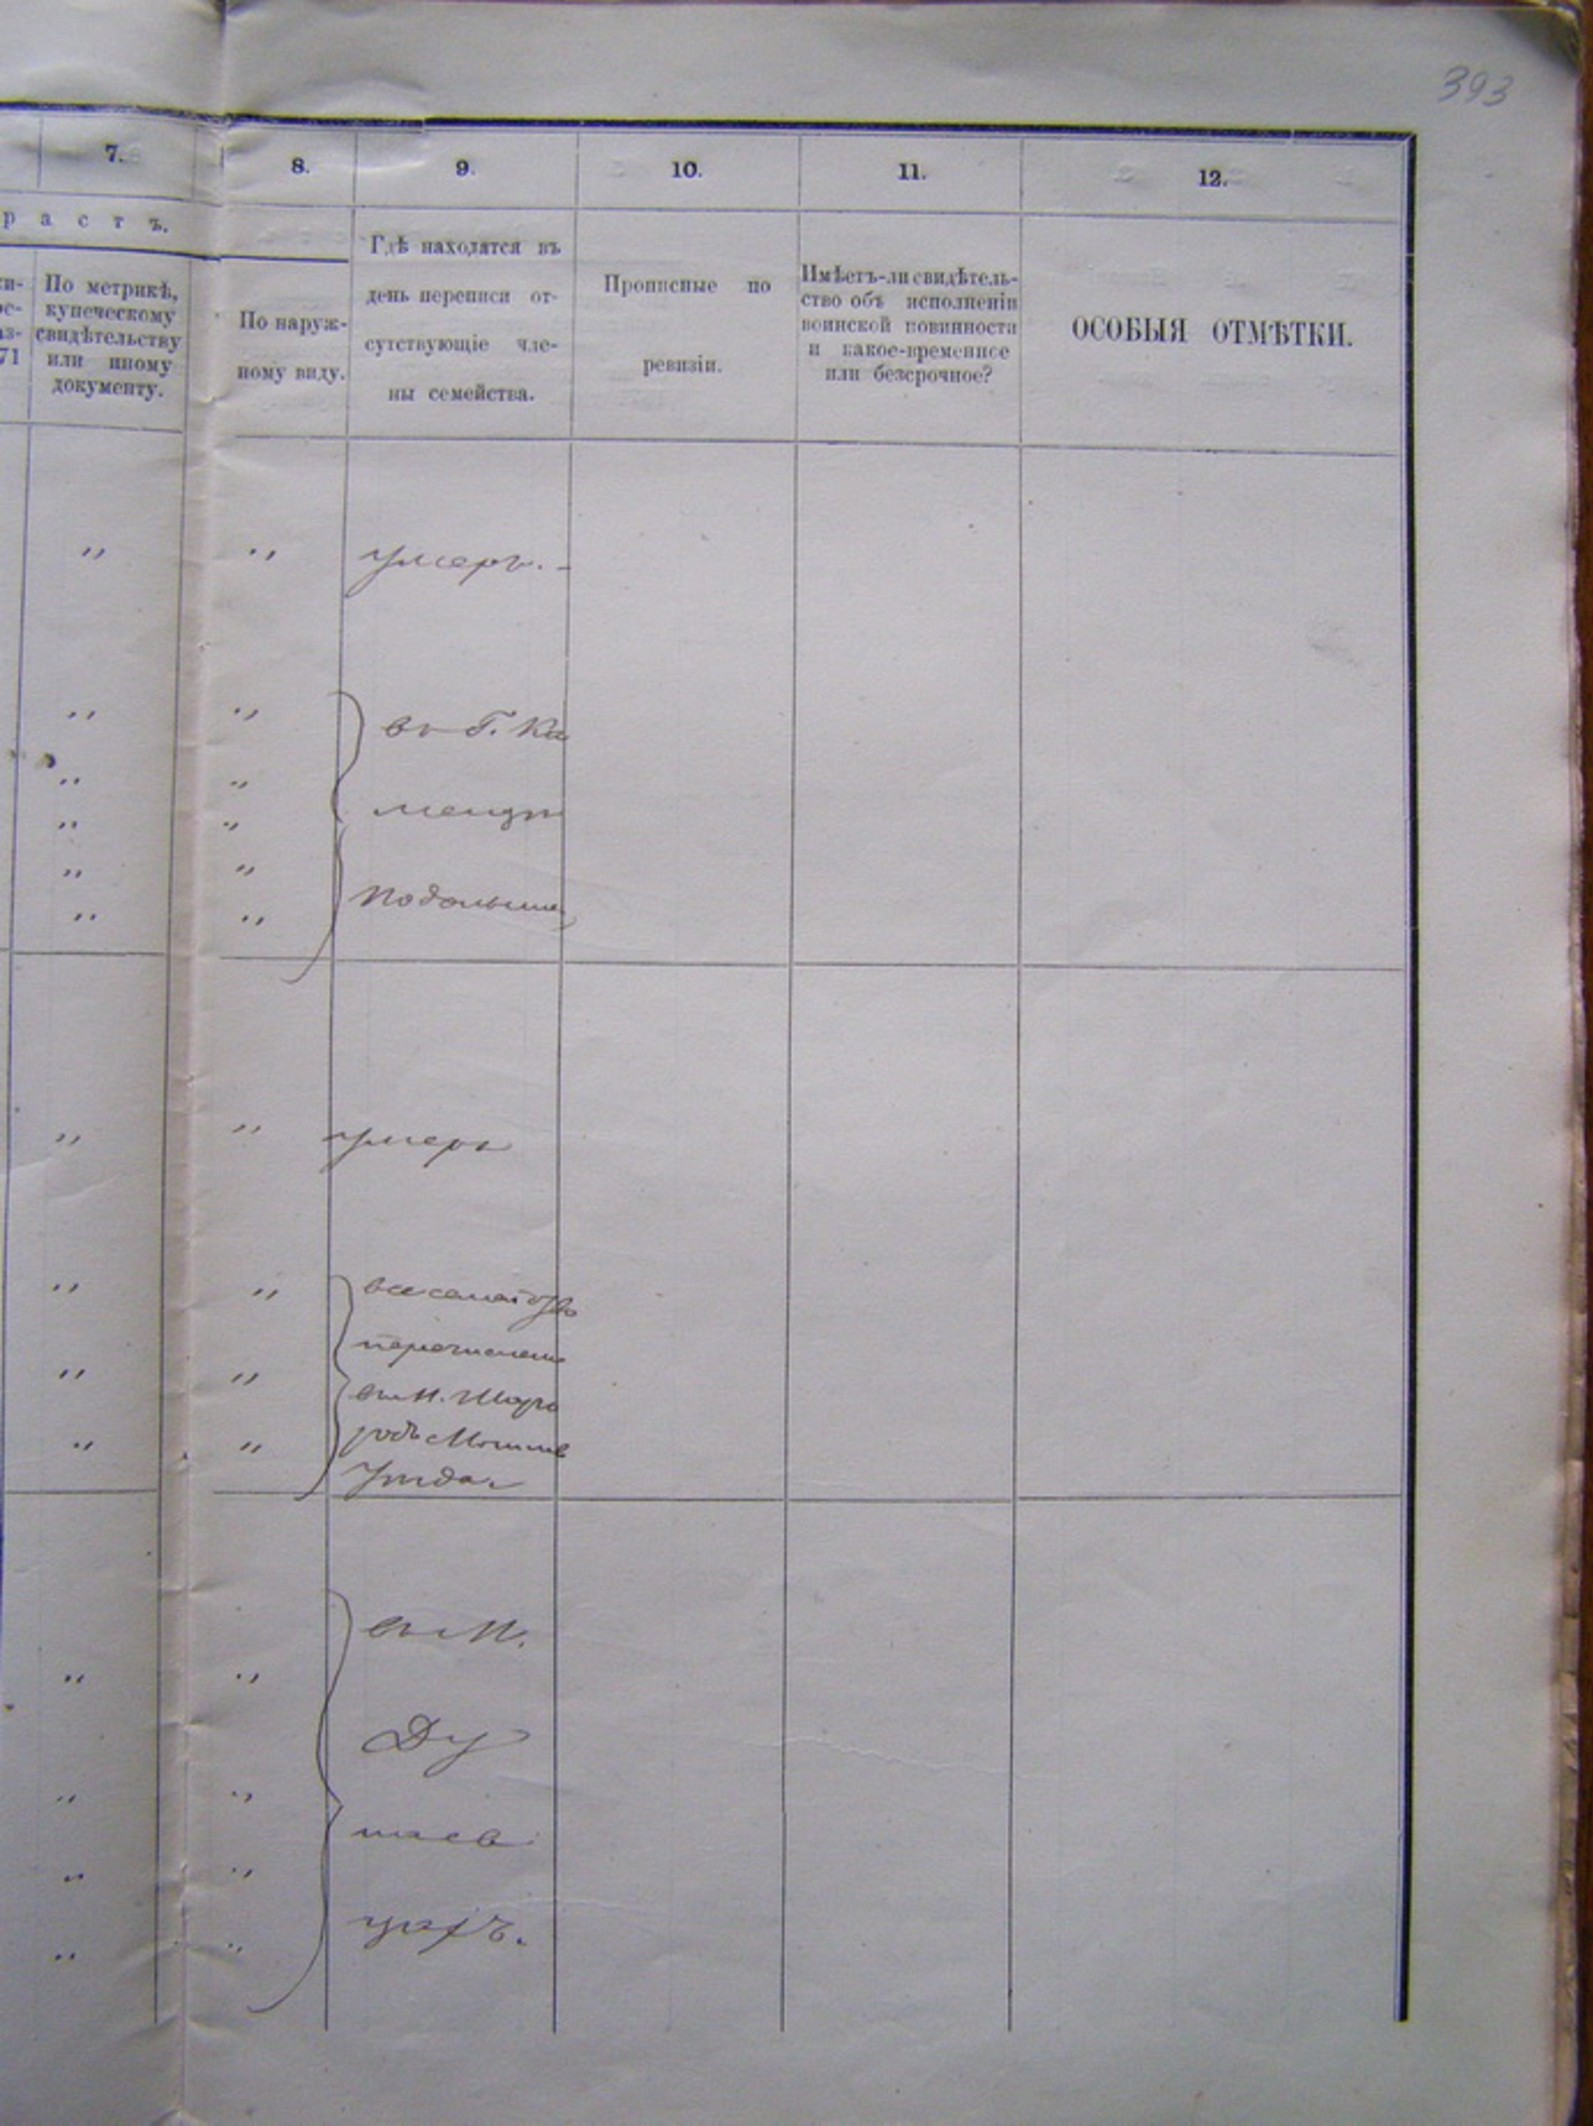 393
7. 8. 9. 10. 11. 12.
р а с т ъ.
71
По метрикѣ,
купеческому
свидѣтельству
или иному
документу.
По наруж-
ному виду.
Гдѣ находятся въ
день переписи от-
сутствующіе чле-
ны семейства.
Прописные по
ревизіи.
Имѣетъ-ли свидѣтель-
ство объ исполненіи
воинской повинности
и какое-временное
или безсрочное?
ОСОБЫЯ ОТМѢТКИ.
„ „ умеръ. -
„ „ въ Г. Ка
„ „
„ „ менцѣ
„ „
„ „ Подольше
„ „ умеръ
„ „ все семейство
перечислено
„ „ въ м. Шарго
„ „ родъ Могилев
Уѣзда
въ М.
„ „
Ду
„ „
наев
„ „
цахъ.
„ „